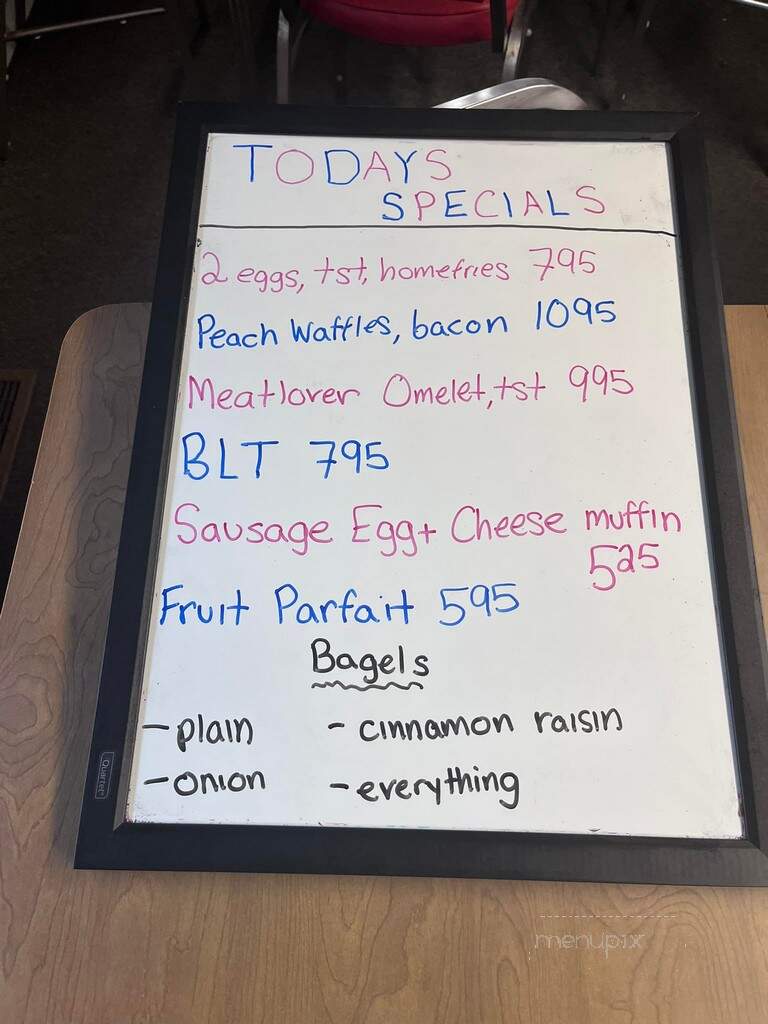 TODAYS
SPECIALS
2 eggs, tst, homefries 795
Peach Waffles, bacon 1095
Meatlover Omelet, tst 995
BLT 795
Sausage Egg + Cheese muffin
525
Fruit Parfait 595
Bagels
- plain - cinnamon raisin
- onion - everything
Quartet
menupix